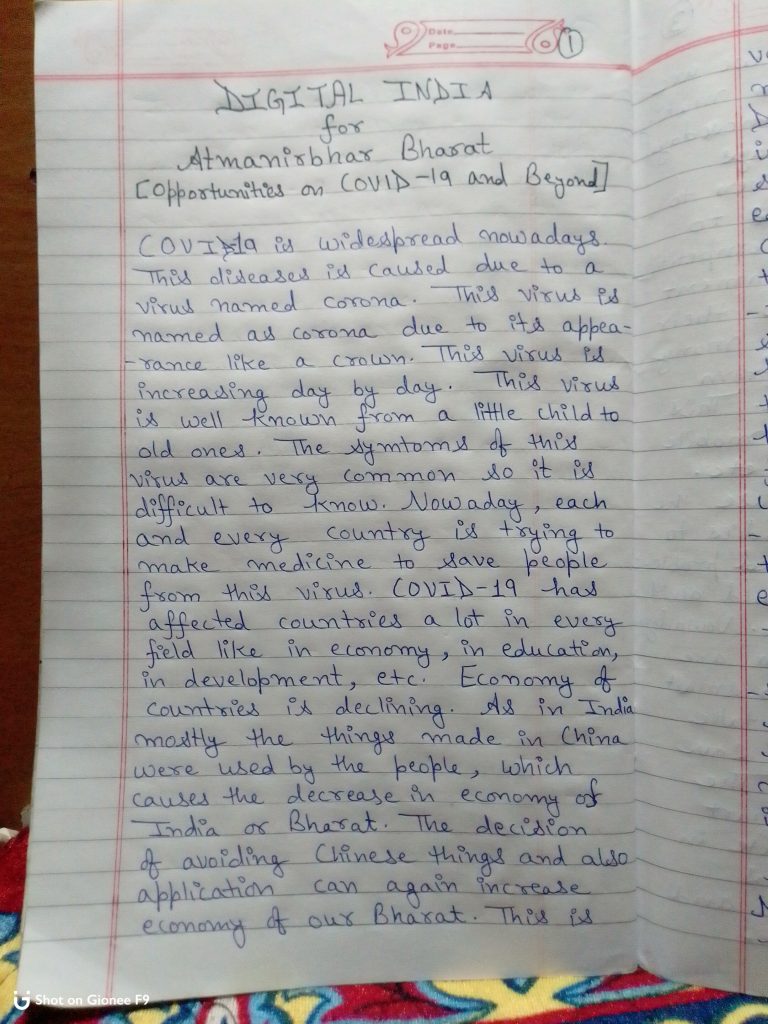 Date
Page
1
DIGITAL INDIA
for
Atmanirbhar Bharat
[Opportunities on COVID-19 and Beyond]
COVID-19 is widespread nowadays.
This diseases is caused due to a
virus named corona. This virus is
named as corona due to its appea-
-rance like a crown. This virus is
increasing day by day. This virus
is well known from a little child to
old ones. The symtoms of this
virus are very common so it is
difficult to know. Nowaday, each
and every country is trying to
make medicine to save people
from this virus. COVID-19 has
affected countries a lot in every
field like in economy, in education,
in development, etc. Economy of
countries is declining. As in India
mostly the things made in China
were used by the people, which
causes the decrease in economy of
India or Bharat. The decision
of avoiding Chinese things and also
application can again increase
economy of our Bharat. This is
Shot on Gionee F9